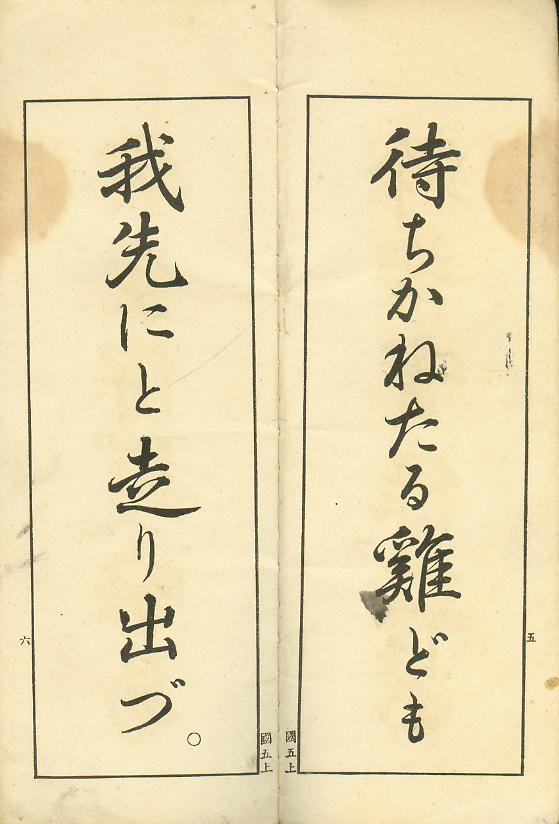 待ちかねたる雞ども
五
國五上
我先にと走り出づ。
六
國五上